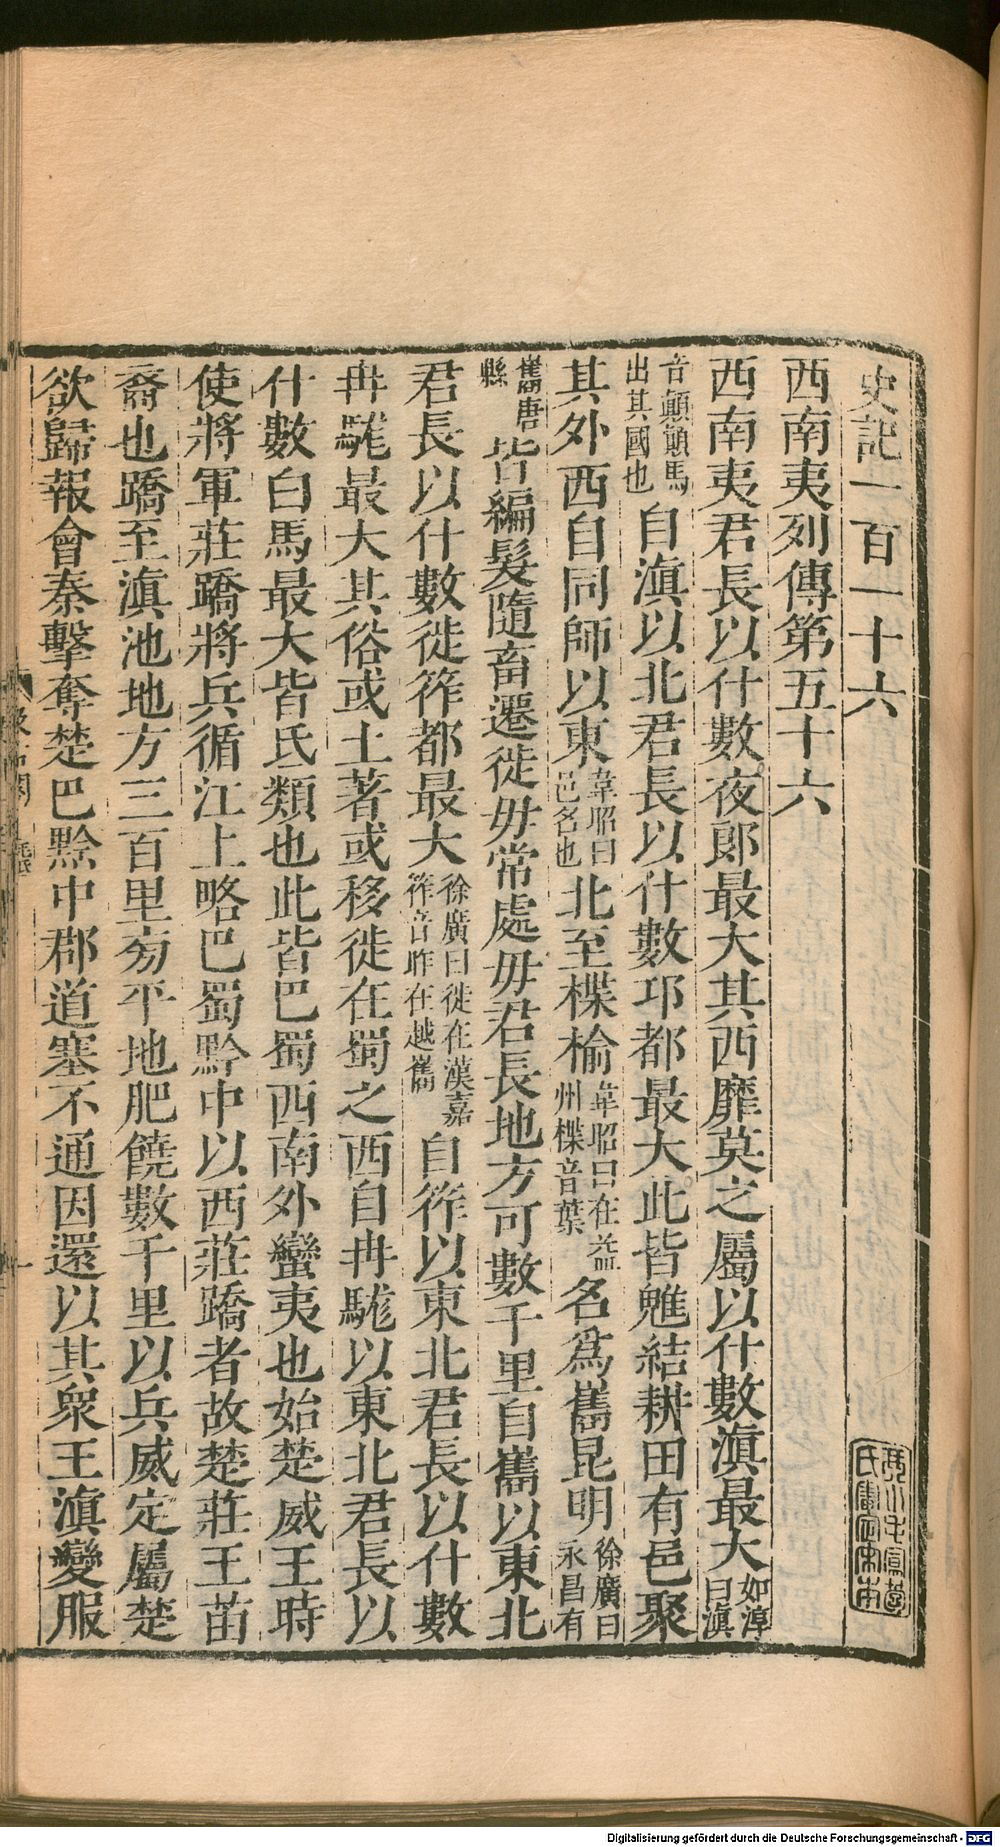 史記一百一十六
琴川毛鳳苞氏審定宋本
西南夷列傳第五十六
西南夷君長以什數夜郎最大其西靡莫之屬以什數滇最大如淳曰滇
音顚顚馬出其國也自滇以北君長以什數邛都最大此皆魋結耕田有邑聚
其外西自同師以東韋昭曰邑名也北至楪榆韋昭曰在益州楪音葉名爲巂昆明徐廣曰永昌有
巂唐縣皆編髮隨畜遷徙毋常處毋君長地方可數千里自巂以東北
君長以什數徙筰都最大徐廣曰徙在漢嘉筰音昨在越巂自筰以東北君長以什數
冉駹最大其俗或土著或移徙在蜀之西自冉駹以東北君長以
什數白馬最大皆氐類也此皆巴蜀西南外蠻夷也始楚威王時
使將軍莊蹻將兵循江上略巴蜀黔中以西莊蹻者故楚莊王苗
裔也蹻至滇池地方三百里旁平地肥饒數千里以兵威定屬楚
欲歸報會秦擊奪楚巴黔中郡道塞不通因還以其衆王滇變服
Digitalisierung gefördert durch die Deutsche Forschungsgemeinschaft - DFG